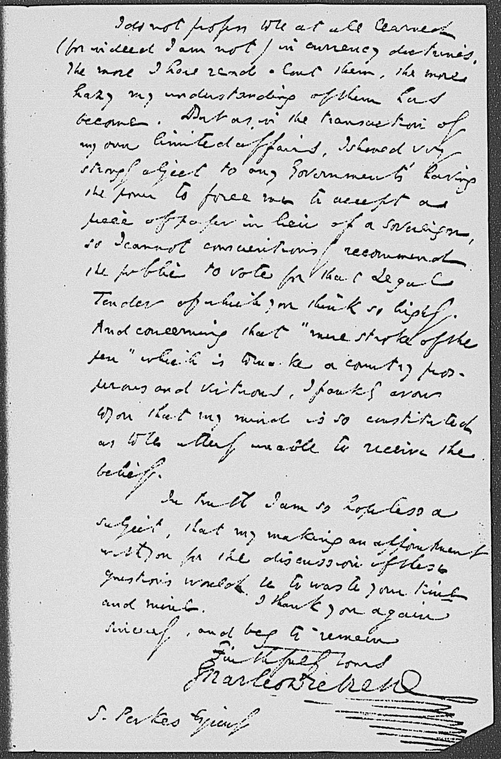 I do not profess to be at all learned
(for indeed I am not) in currency doctrines.
The more I have read about them, the more
hazy my understanding of them has
become. But as in the transaction of
my own limited affairs, I should very
strongly object to any Governments' having
the power to force me to accept a
piece of paper in lieu of a sovereign,
so I cannot conscientiously recommend
the public to vote for that Legal
Tender of which you think so highly.
And concerning that "mere stroke of the
pen" which is to make a country pros-
perous and virtuous, I frankly avow
to you that my mind is so constituted
as to be utterly unable to receive the
belief.
In truth I am so hopeless a
subject, that my making an appointment
with you for the discussion of these
questions would be to waste your time
and mine. I thank you again
sincerely, and beg to remain
Faithfully Yours
Charles Dickens
S. Perkes Esquire